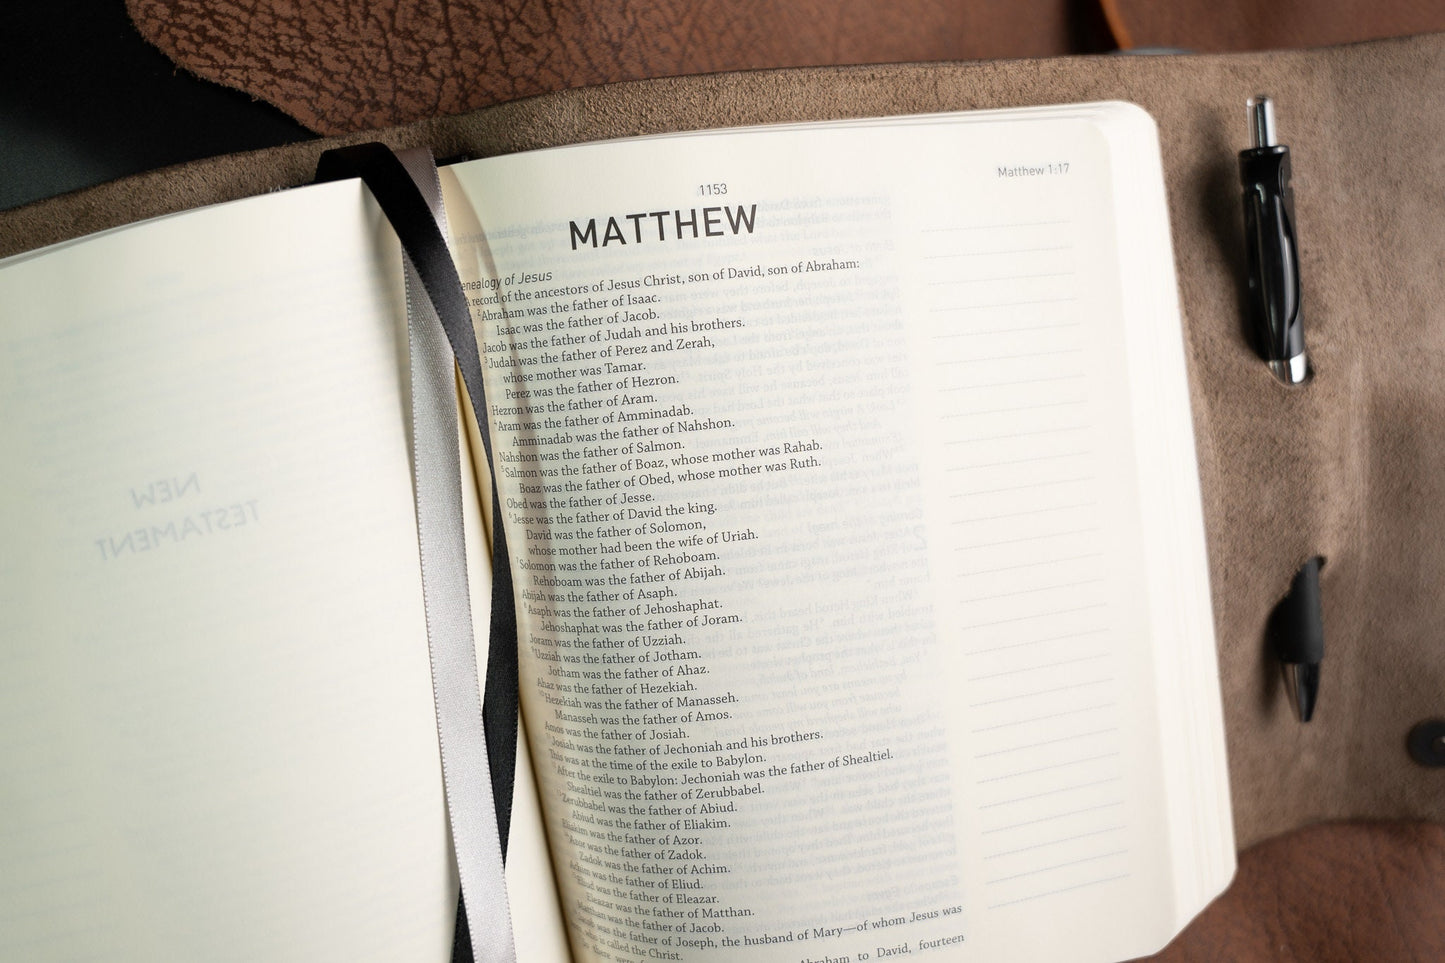 NEW
TESTAMENT
Matthew 1:17
1153
MATTHEW
enealogy of Jesus
A record of the ancestors of Jesus Christ, son of David, son of Abraham:
2Abraham was the father of Isaac.
Isaac was the father of Jacob.
Jacob was the father of Judah and his brothers.
3Judah was the father of Perez and Zerah,
whose mother was Tamar.
Perez was the father of Hezron.
Hezron was the father of Aram.
4Aram was the father of Amminadab.
Amminadab was the father of Nahshon.
Nahshon was the father of Salmon.
5Salmon was the father of Boaz, whose mother was Rahab.
Boaz was the father of Obed, whose mother was Ruth.
Obed was the father of Jesse.
6Jesse was the father of David the king.
David was the father of Solomon,
whose mother had been the wife of Uriah.
7Solomon was the father of Rehoboam.
Rehoboam was the father of Abijah.
Abijah was the father of Asaph.
8Asaph was the father of Jehoshaphat.
Jehoshaphat was the father of Joram.
Joram was the father of Uzziah.
9Uzziah was the father of Jotham.
Jotham was the father of Ahaz.
Ahaz was the father of Hezekiah.
10Hezekiah was the father of Manasseh.
Manasseh was the father of Amos.
Amos was the father of Josiah.
11Josiah was the father of Jechoniah and his brothers.
This was at the time of the exile to Babylon.
12After the exile to Babylon: Jechoniah was the father of Shealtiel.
Shealtiel was the father of Zerubbabel.
13Zerubbabel was the father of Abiud.
Abiud was the father of Eliakim.
Eliakim was the father of Azor.
14Azor was the father of Zadok.
Zadok was the father of Achim.
Achim was the father of Eliud.
15Eliud was the father of Eleazar.
Eleazar was the father of Matthan.
Matthan was the father of Jacob.
16Jacob was the father of Joseph, the husband of Mary—of whom Jesus was
who is called the Christ.
Abraham to David, fourteen